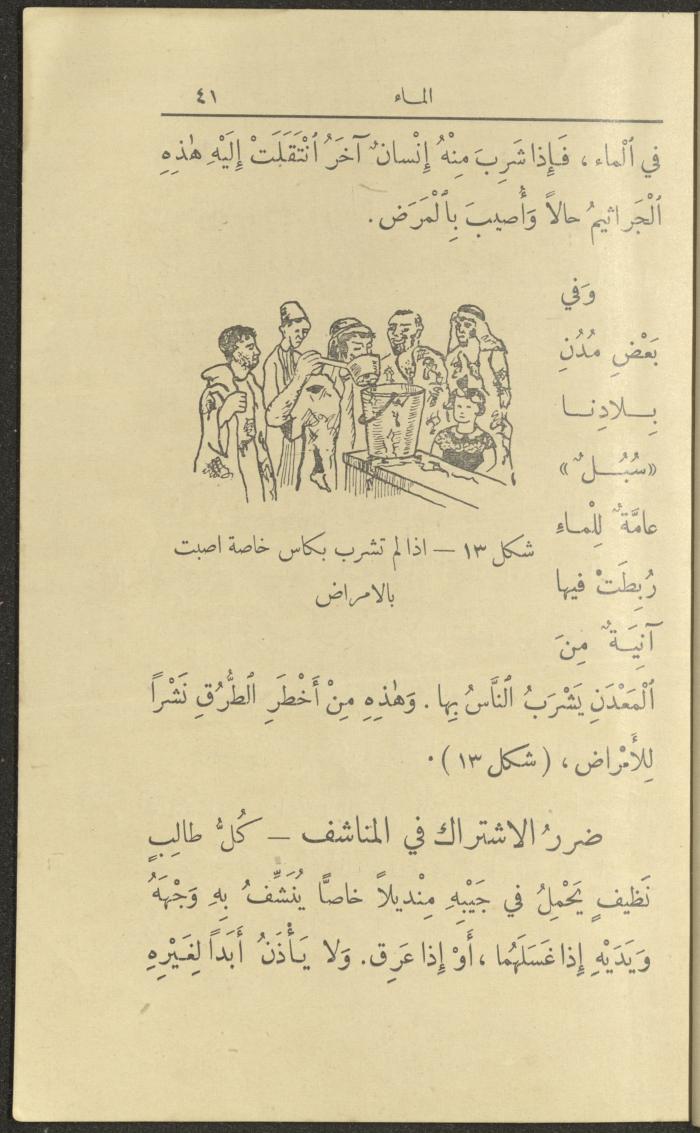 الماء ٤١
في ٱلْماء ، فَإِذا شَرِبَ مِنْهُ إِنْسانٌ آخَرُ ٱنْتَقَلَتْ إِلَيْهِ هٰذِهِ
ٱلْجَراثيمُ حالاً وَأُصيبَ بِٱلْمَرَض .
وَفي
بَعْضِ مُدُنِ
بِــلادِنــا
«سُبُــلٌ»
عامَّةٌ لِلْماءِ
رُبِطَتْ فيها
آنِيَــةٌ مِنَ
شكل ١٣ – اذا لم تشرب بكاس خاصة اصبت
بالامراض
ٱلْمَعْدَنِ يَشْرَبُ ٱلنَّاسُ بِها . وَهٰذِهِ مِنْ أَخْطَرِ ٱلطُّرُقِ نَشْراً
لِلأَمْراض ، ( شكل ١٣ ) .
ضررُ الاشتراك في المناشف – كُلُّ طالِبٍ
نَظيفٍ يَحْمِلُ في جَيْبِهِ مِنْديلاً خاصًّا يُنَشِّفُ بِهِ وَجْهَهُ
وَيَدَيْهِ إِذا غَسَلَهُما ، أَوْ إِذا عَرِق. وَلا يَأْذَنُ أَبَداً لِغَيْرِهِ